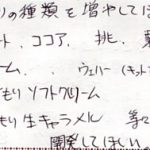 の種類を増やしてほ
ート、ココア、桃、栗
ーム、、ウェハー(キット
もり ソフトクリーム
もり生キャラメル 等々
開発してほしい。